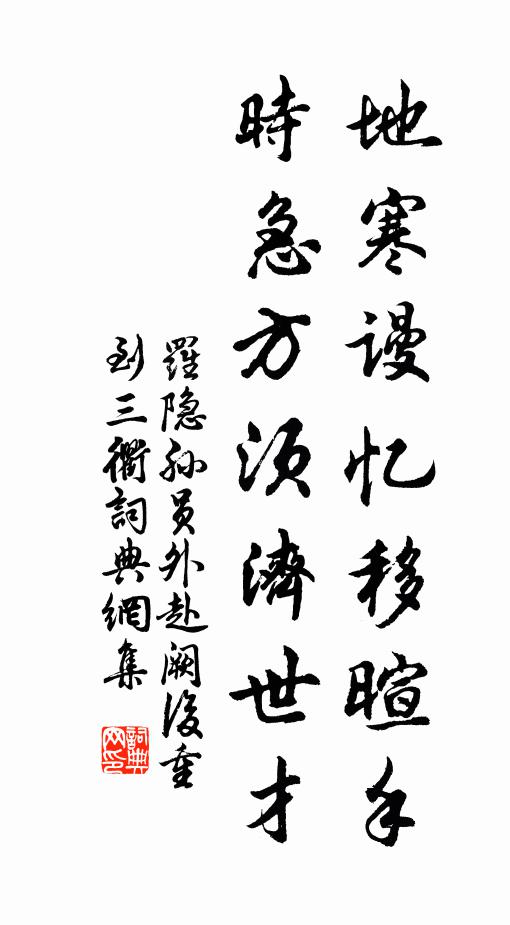 地寒謾忆移暄手
時急方須濟世才
羅隐孙员外赴阙後重
到三衢詞典網集
詞典网印